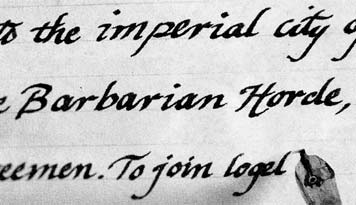 to the imperial city
Barbarian Horde,
To join logel